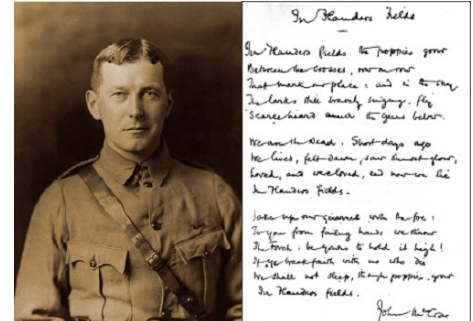 In Flanders Fields
In Flanders fields the poppies grow
Between the crosses, row on row
That mark our place : and in the sky
The larks still bravely singing, fly
Scarce heard amid the guns below.
We are the Dead. Short days ago
We lived, felt dawn, saw sunset glow,
Loved, and were loved, and now we lie
In Flanders fields.
Take up our quarrel with the foe :
To you from failing hands we throw
The torch : be yours to hold it high!
If ye break faith with us who die
We shall not sleep, though poppies grow
In Flanders fields.
John McCrae